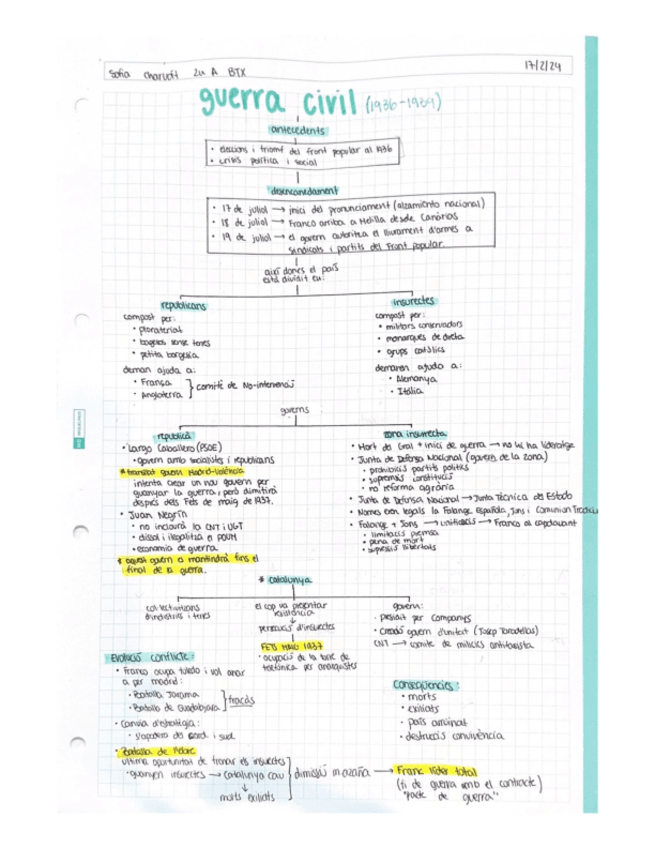 Sofia Charloft 2n A BTX
17/2/24
guerra civil (1936-1939)
antecedents
• eleccions i triomf del front popular al 1936
• crisis política i social
desencadenament
• 17 de juliol → inici del pronunciament (alzamiento nacional)
• 18 de juliol → Franco arriba a Melilla desde Canarias
• 19 de juliol → el govern autoritza el lliurament d'armes a
sindicats i partits del Front popular
així doncs el país
està dividit en:
republicans
compost per:
• proletariat
• pagesos sense terres
• petita burgesia
deman ajuda a:
• França
• Anglaterra
} comitè de No-intervenció
insurectes
compost per:
• militars conservadors
• monarques de dreta
• grups catòlics
demanen ajuda a:
• Alemanya
• Itàlia
governs
república
• Largo Caballero (PSOE)
• govern amb socialistes i republicans
* trasllat govern Madrid-València
intenta crear un nou govern per
guanyar la guerra, però dimitirà
després dels Fets de maig de 1937.
• Juan Negrín
• no inclourà la CNT i UGT
• dissol i ilegalitza o POUM
• economia de guerra
* aquest govern a mantindrà fins el
final de la guerra.
zona insurrecta
• Mort del Gral + inici de guerra → no hi ha lideratge
• Junta de Defensa Nacional (govern de la zona)
• prohibició partits polítics
• supremès constitució
• no reforma agrària
• Junta de Defensa Nacional → Junta Tècnica del Estado
• Només eren legals la Falange Española, Jons i Comunion Tradicio
• Falange + Jons → unificació → Franco al capdavant
• limitació premsa
• pena de mort
• supressió llibertats
* Catalunya
col·lectivitzacions
d'indústries i terres
el cop va presentar
resistència
↓
persecució d'insurectes
FETS MAIG 1937
• ocupació de la torre de
telefònica per anarquistes
govern:
• presidit per Companys
• creació govern d'unitat (Josep Tarradellas)
CNT → comitè de milícies antifeixista
Evolució conflicte:
• Franco ocupa Toledo i vol anar
a per madrid:
• Batalla Jarama
• Batalla de Guadalajara
} fracàs
• Canvia d'estratègia:
• s'apodera del nord i sud.
• Batalla de l'Ebre
última oportunitat de frenar els insurectes
• guanyen insurectes → Catalunya cau
↓
molts exiliats
dimissió m azaña → Franc líder total
(fi de guerra amb el contracte)
"Parte de guerra"
Conseqüències:
• morts
• exiliats
• país arruinat
• destrucció convivència